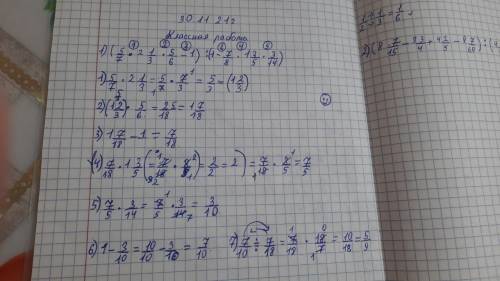 30.11.212
Классная работа
1) (5/7 · 2 1/3 · 5/6 - 1) : (1 - 7/8 · 1 3/5 · 3/14)
1) 5/7 · 2 1/3 = 5/7 · 7/3 = 5/3 = (1 2/3)
2) (1 2/3) · 5/6 = 25/18 = 1 7/18
3) 1 7/18 - 1 = 7/18
= 7/18 · 8/5 = 7/5
5) 7/5 · 3/14 = 7/5 · 3/14 = 3/10
6) 1 - 3/10 = 10/10 - 3/10 = 7/10
7) 7/10 : 7/18 = 7/18 · 18/7 = 10/18 = 5/9
1/2 · 1/3 = 1/6